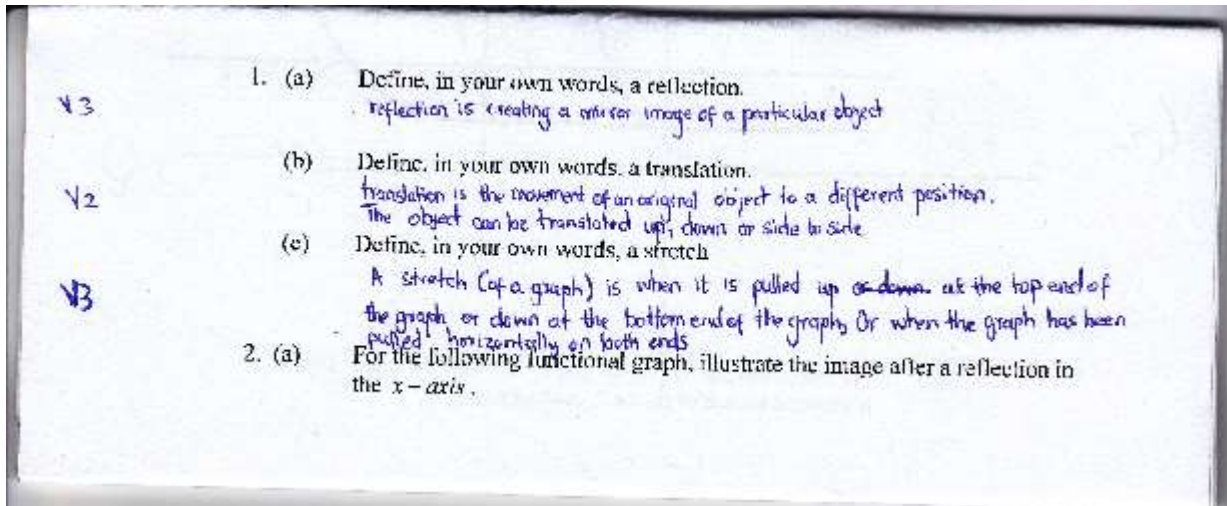 1. (a) Define, in your own words, a reflection.
V3 reflection is creating a mirror image of a particular object
(b) Define, in your own words, a translation.
V2 translation is the movement of an original object to a different position.
The object can be translated up, down or side to side
(c) Define, in your own words, a stretch
A stretch (of a graph) is when it is pulled up or down at the top end of
V3 the graph or down at the bottom end of the graph, Or when the graph has been
pulled horizontally on both ends
2. (a) For the following functional graph, illustrate the image after a reflection in
the x – axis.